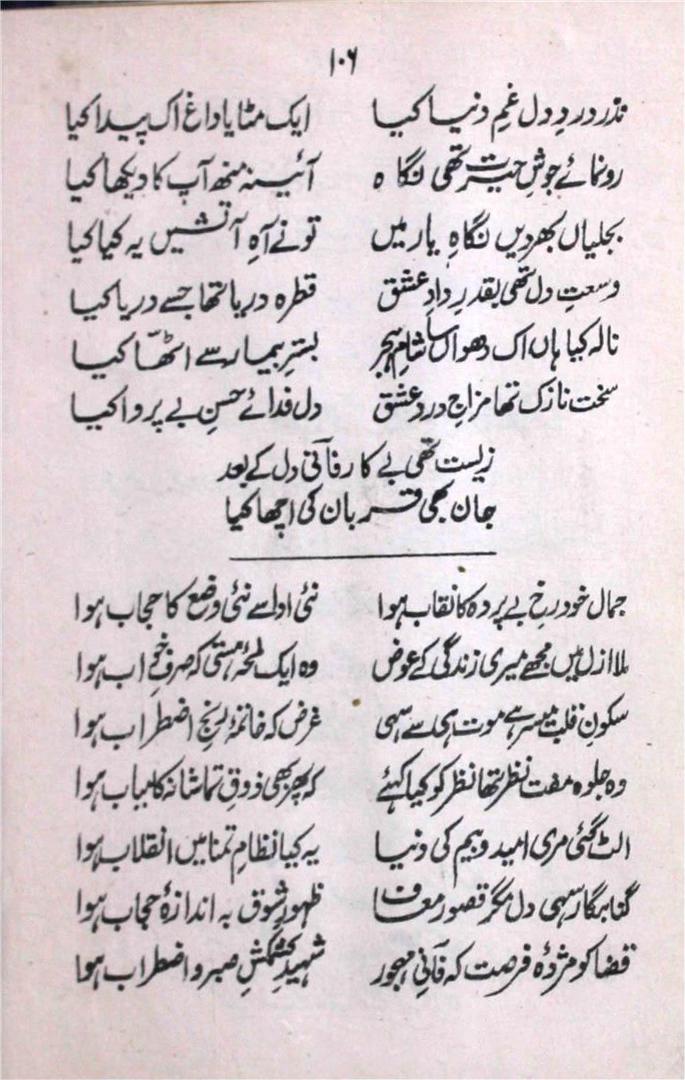 ۱۰۶
نذر دردِ دل غمِ دنیا کیا ایک مٹایا داغ اک پیدا کیا
رونمائے جوشِ حیرت تھی نگاہ آئینہ منھ آپ کا دیکھا کیا
بجلیاں بھر دیں نگاہِ یار میں تو نے آہِ آتشیں یہ کیا کیا
وسعتِ دل تھی بقدرِ دادِ عشق قطرہ دریا تھا جسے دریا کیا
نالہ کیا ہاں اک دھواں سا شامِ ہجر بسترِ بیمار سے اٹھّا کیا
سخت نازک تھا مزاجِ دردِ عشق دل فدائے حسنِ بے پروا کیا
زیست تھی بے کار فانؔی دل کے بعد
جان بھی قربان کی اچھا کیا
جمال خود رخِ بے پردہ کا نقاب ہوا نئی ادا سے نئی وضع کا حجاب ہوا
ملا ازل میں مجھے میری زندگی کے عوض وہ ایک لمحۂ ہستی کہ صرفِ خواب ہوا
سکونِ قلب میسر ہے موت ہی سے سہی غرض کہ خاتمۂ رنجِ اضطراب ہوا
وہ جلوہ مفت نظر تھا نظر کو کیا کہئے کہ پھر بھی ذوقِ تماشا نہ کامیاب ہوا
الٹ گئی مری امید و بیم کی دنیا یہ کیا نظامِ تمنا میں انقلاب ہوا
گناہگار سہی دل مگر قصور معاف ظہورِ شوق بہ اندازۂ حجاب ہوا
قضا کو مژدۂ فرصت کہ فانؔیِ مہجور شہیدِ کشمکشِ صبر و اضطراب ہوا